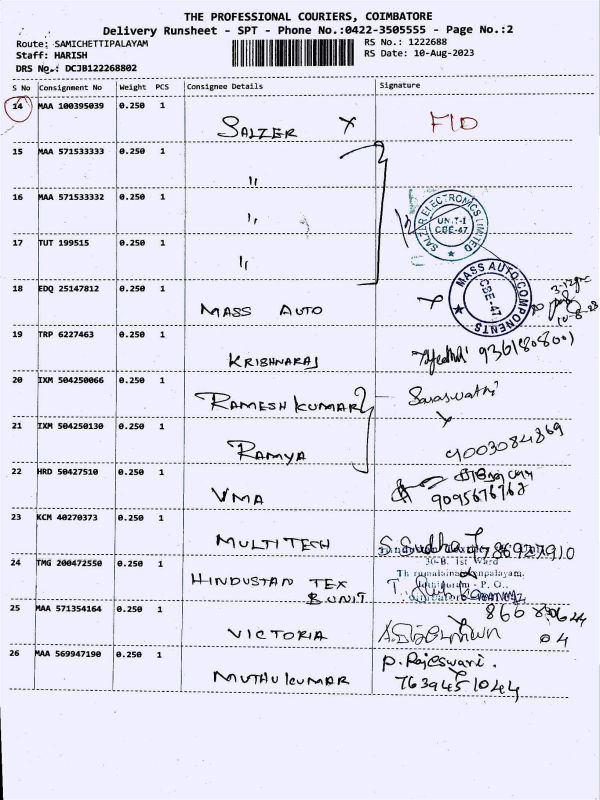 THE PROFESSIONAL COURIERS, COIMBATORE
Delivery Runsheet - SPT - Phone No.:0422-3505555 - Page No.:2
Route: SAMICHETTIPALAYAM
RS No.: 1222688
Staff: HARISH
RS Date: 10-Aug-2023
DRS No.: DCJB122268802
S No Consignment No Weight PCS Consignee Details Signature
14 MAA 100395039 0.250 1 SALZER X FID
15 MAA 571533333 0.250 1 "
16 MAA 571533332 0.250 1 "
SALZAR ELECTRONICS LIMITED
UNIT-I
CBE-47
17 TUT 199515 0.250 1 "
18 EDQ 25147812 0.250 1 MASS AUTO
MASS AUTO COMPONENTS
CBE-47
10-8-23
19 TRP 6227463 0.250 1 KRISHNARAJ
20 IXM 504250066 0.250 1 RAMESH KUMAR Saraswathi
21 IXM 504250130 0.250 1 RAMYA 9003084869
22 HRD 50427510 0.250 1 VMA 9095676762
23 KCM 40270373 0.250 1 MULTITECH S. Sudha
30-B, 1st Ward
24 TMG 200472550 0.250 1 HINDUSTAN TEX
B UNIT
25 MAA 571354164 0.250 1 VICTORIA
04
26 MAA 569947190 0.250 1 MUTHU KUMAR P. Rajeswari.
7639451044